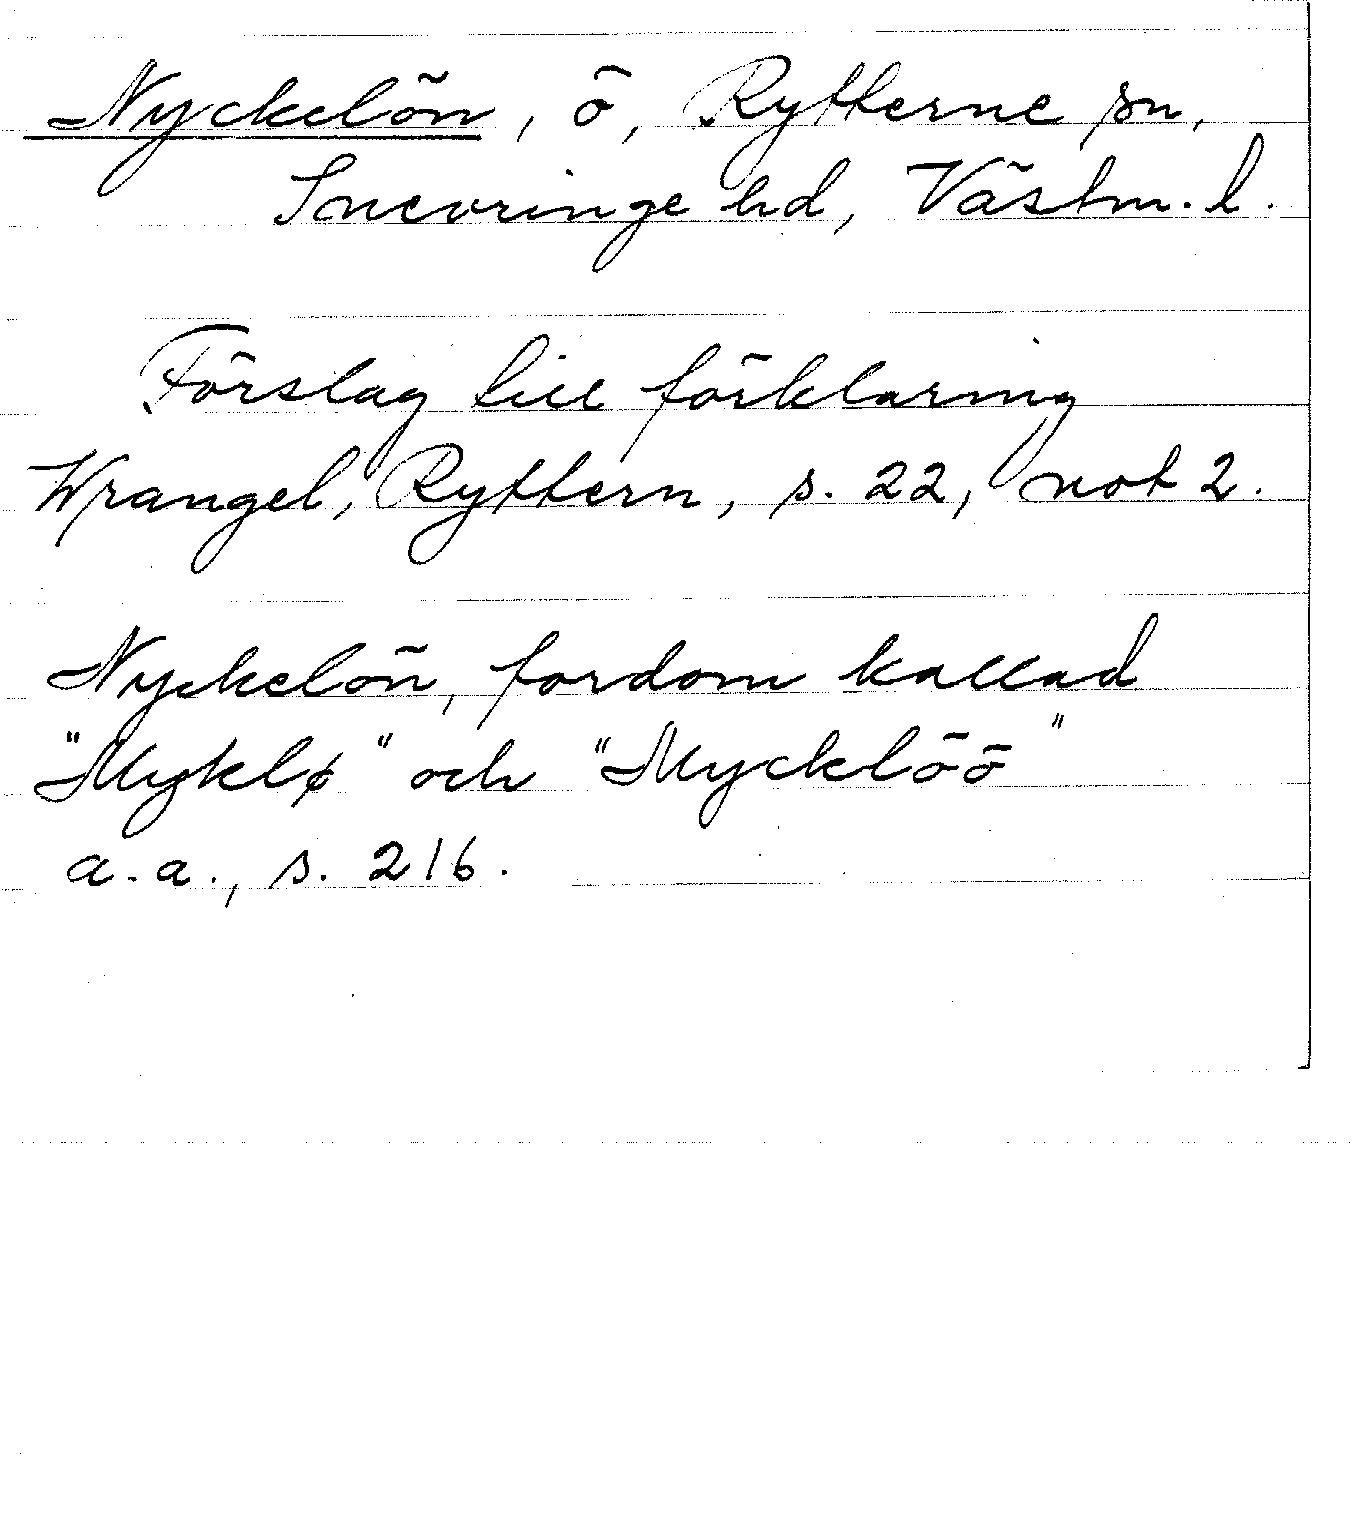 Nyckelön, ö, Rytterne sn,
Snevringe hd, Västm. l.
Förslag till förklaring
Wrangel, Ryttern, s. 22, not 2.
Nyckelön, fordom kallad
"Myklø" och "Mycklöö"
a.a., s. 216.